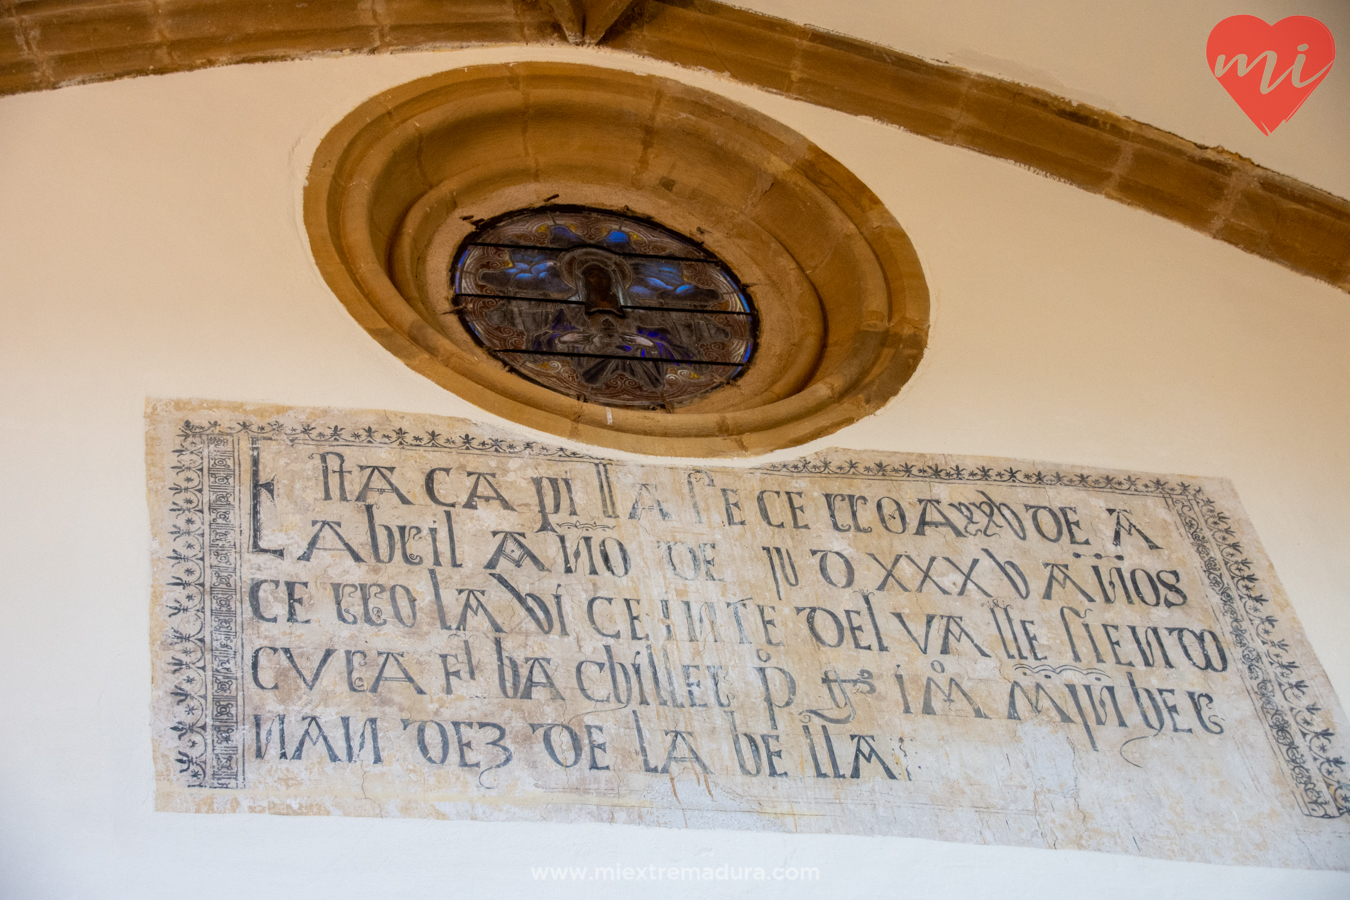 mi
ESTA CAPILLA SE CERRO A XXV DE
ABRIL AÑO DE MDXXXV AÑOS
CERROLA VICEINTE DEL VALLE SIENDO
CURA EL BACHILLER P° MĪN HER
NANDEZ DE LA BELLA
www.miextremadura.com